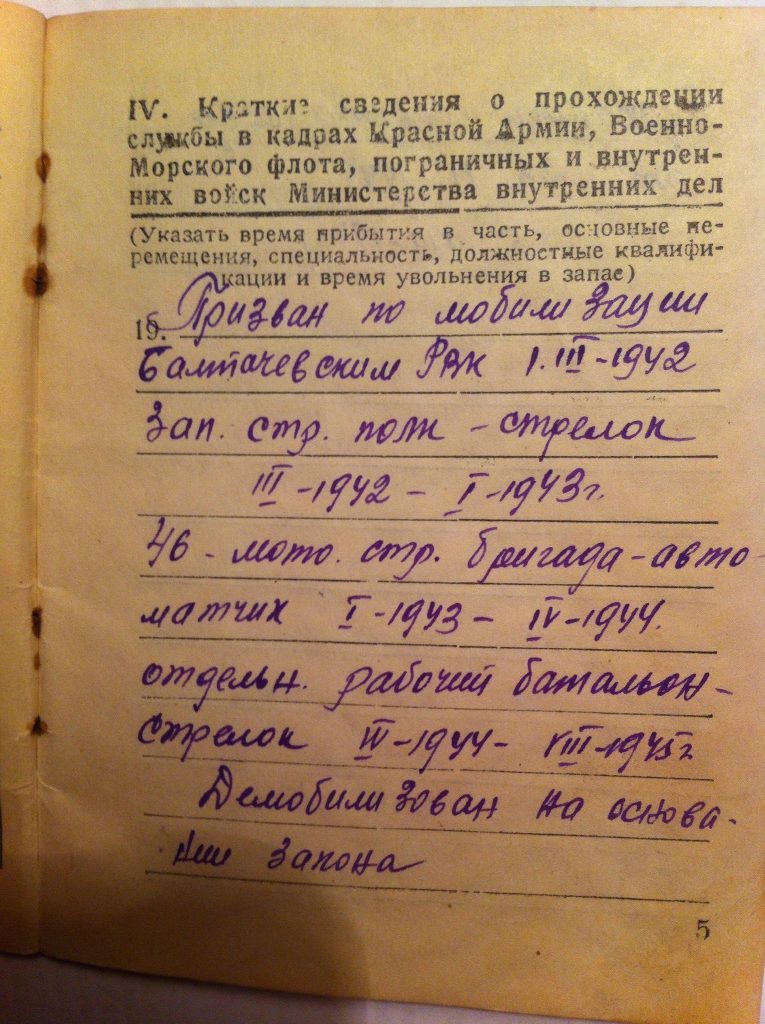 IV. Краткие сведения о прохождении
службы в кадрах Красной Армии, Военно-
Морского флота, пограничных и внутрен-
них войск Министерства внутренних дел
(Указать время прибытия в часть, основные пе-
ремещения, специальность, должностные квалифи-
кации и время увольнения в запас)
19. Призван по мобилизации
Балтачевским РВК 1.III-1942
Зап. стр. полк - стрелок
III-1942 - I-1943г.
46 - мото. стр. бригада - авто-
матчик I-1943 - IV-1944.
отдельн. рабочий батальон -
стрелок IV-1944 - VIII-1945г
Демобилизован на основа-
нии закона
5